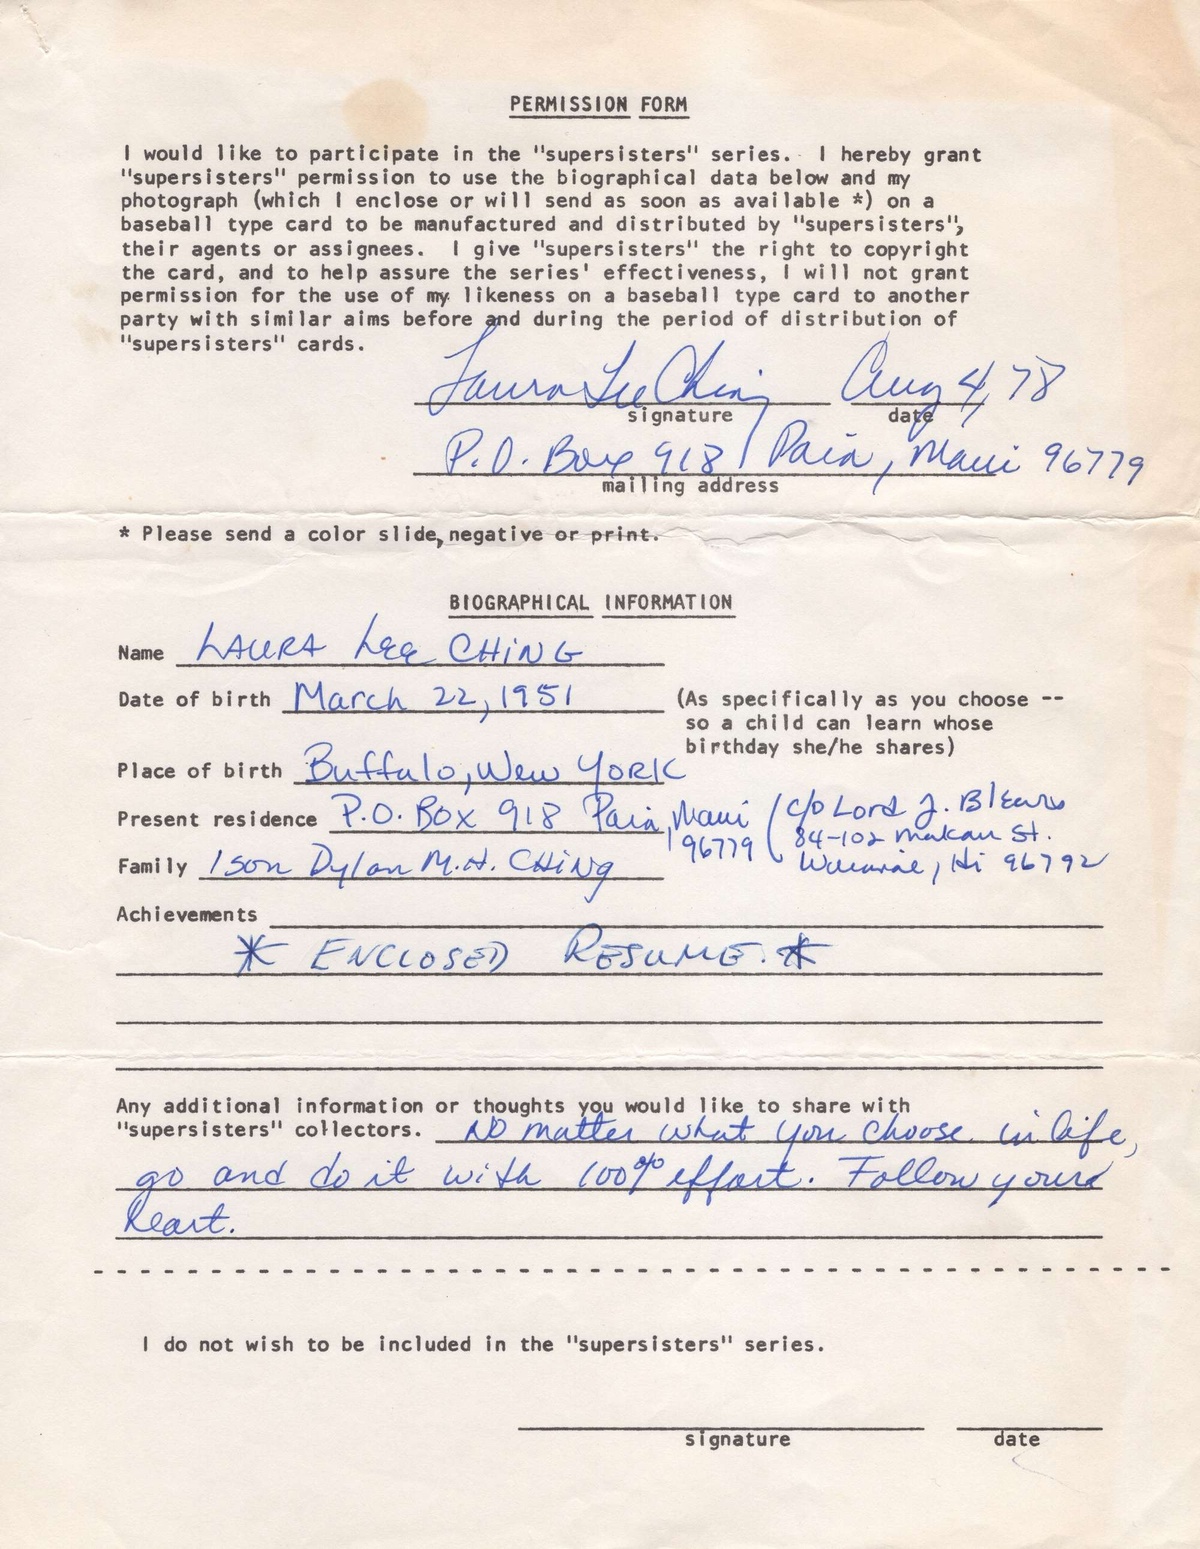 PERMISSION FORM
I would like to participate in the "supersisters" series. I hereby grant
"supersisters" permission to use the biographical data below and my
photograph (which I enclose or will send as soon as available *) on a
baseball type card to be manufactured and distributed by "supersisters",
their agents or assignees. I give "supersisters" the right to copyright
the card, and to help assure the series' effectiveness, I will not grant
permission for the use of my likeness on a baseball type card to another
party with similar aims before and during the period of distribution of
"supersisters" cards.
Laura Lee Ching Aug 4, 78
signature date
P.O. Box 918 Paia, Maui 96779
mailing address
* Please send a color slide, negative or print.
BIOGRAPHICAL INFORMATION
Name LAURA Lee CHING
Date of birth March 22, 1951 (As specifically as you choose --
so a child can learn whose
birthday she/he shares)
Place of birth Buffalo, New YORK
Present residence P.O. Box 918 Paia, Maui 96779 (c/o Lord J. Blears
84-102 Makau St.
Waianae, Hi 96792
Family 1 son Dylan M.H. CHING
Achievements
* ENCLOSED RESUME. *
Any additional information or thoughts you would like to share with
"supersisters" collectors. No matter what you choose in life,
go and do it with 100% effort. Follow your
heart.
I do not wish to be included in the "supersisters" series.
signature date